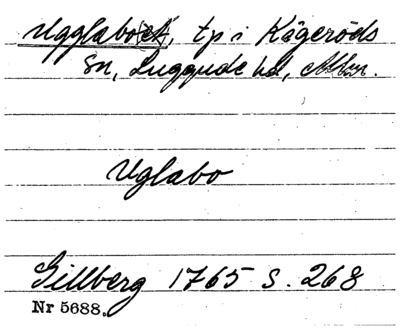 Ugglabo, tp i Kågeröds
sn, Luggude hd, Mlm.
Uglabo
Gillberg 1765 s. 268
Nr 5688.